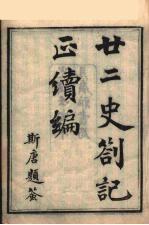 廿二史劄記
正續編
斯唐題簽